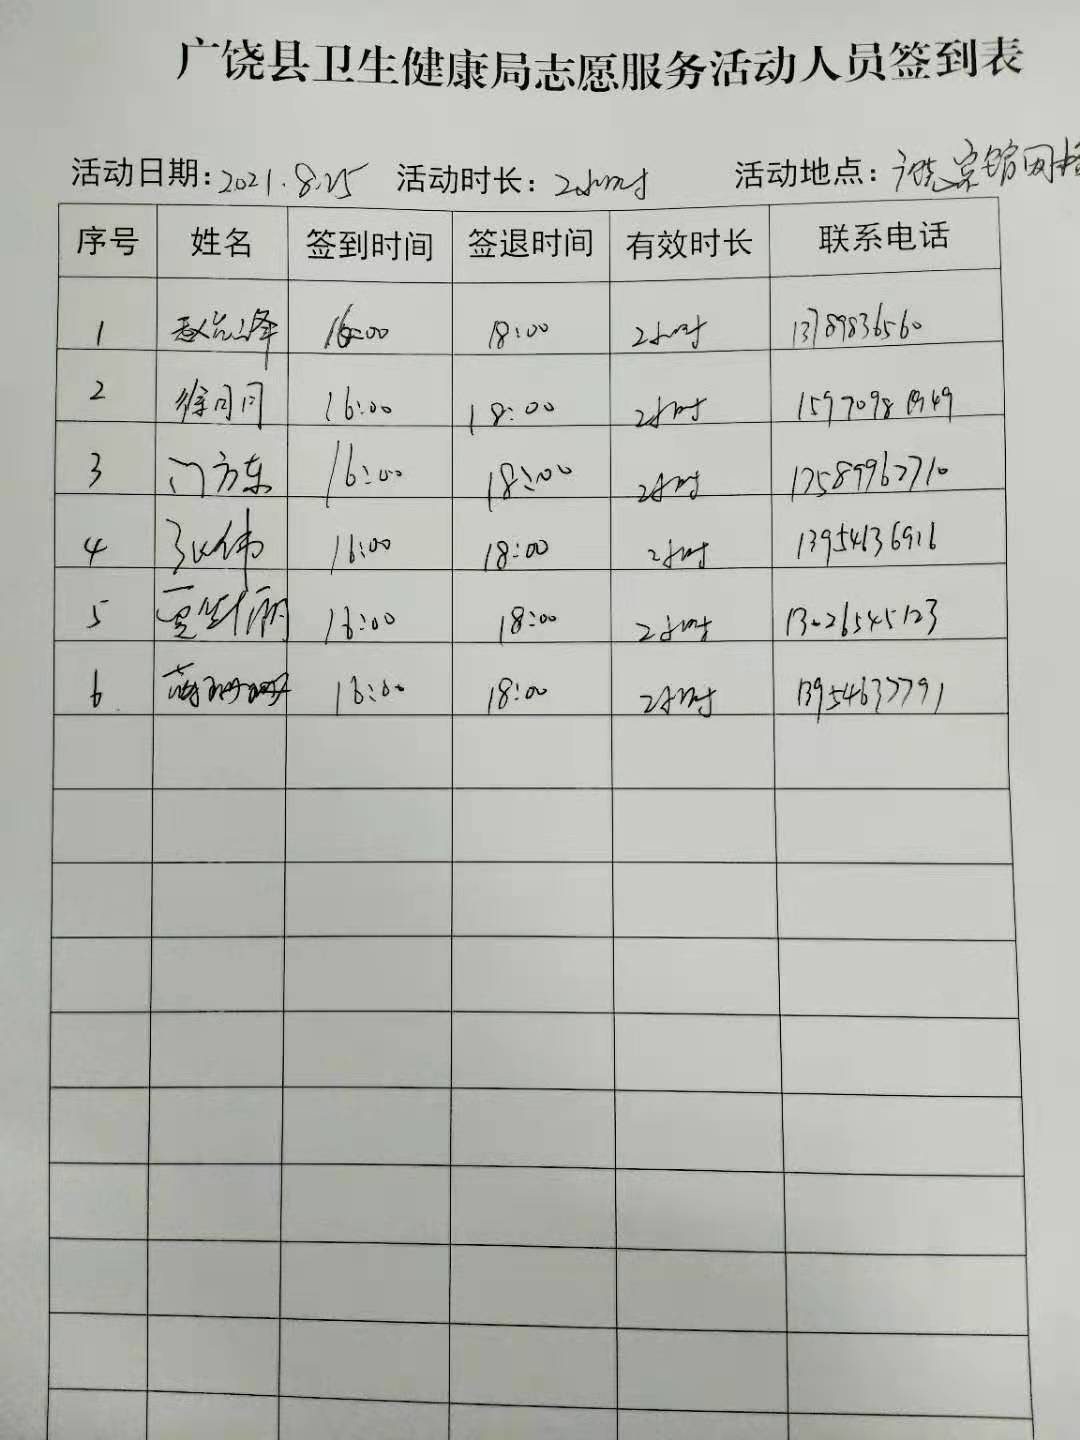 广饶县卫生健康局志愿服务活动人员签到表
活动日期：2021.8.25 活动时长：2小时 活动地点：
序号 姓名 签到时间 签退时间 有效时长 联系电话
1 16:00 18:00 2小时 13789836560
2 徐同同 16:00 18:00 2小时 15970981949
3 门方东 16:00 18:00 2小时 13589962710
4 张伟 16:00 18:00 2小时 13954636916
5 16:00 18:00 2小时 13026545123
6 16:00 18:00 2小时 13954637791